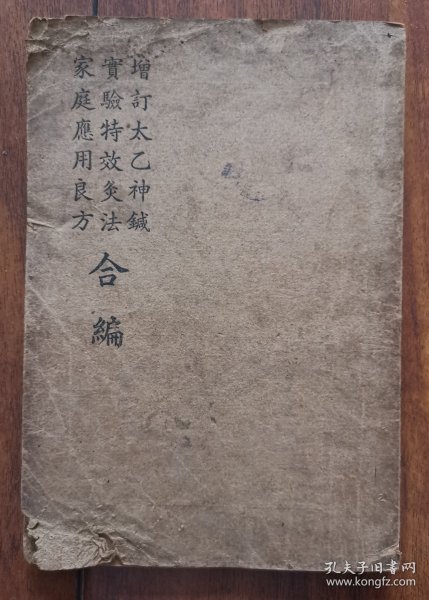 增訂太乙神鍼
實驗特效灸法
家庭應用良方
合編
孔夫子旧书网
www.kongfz.com